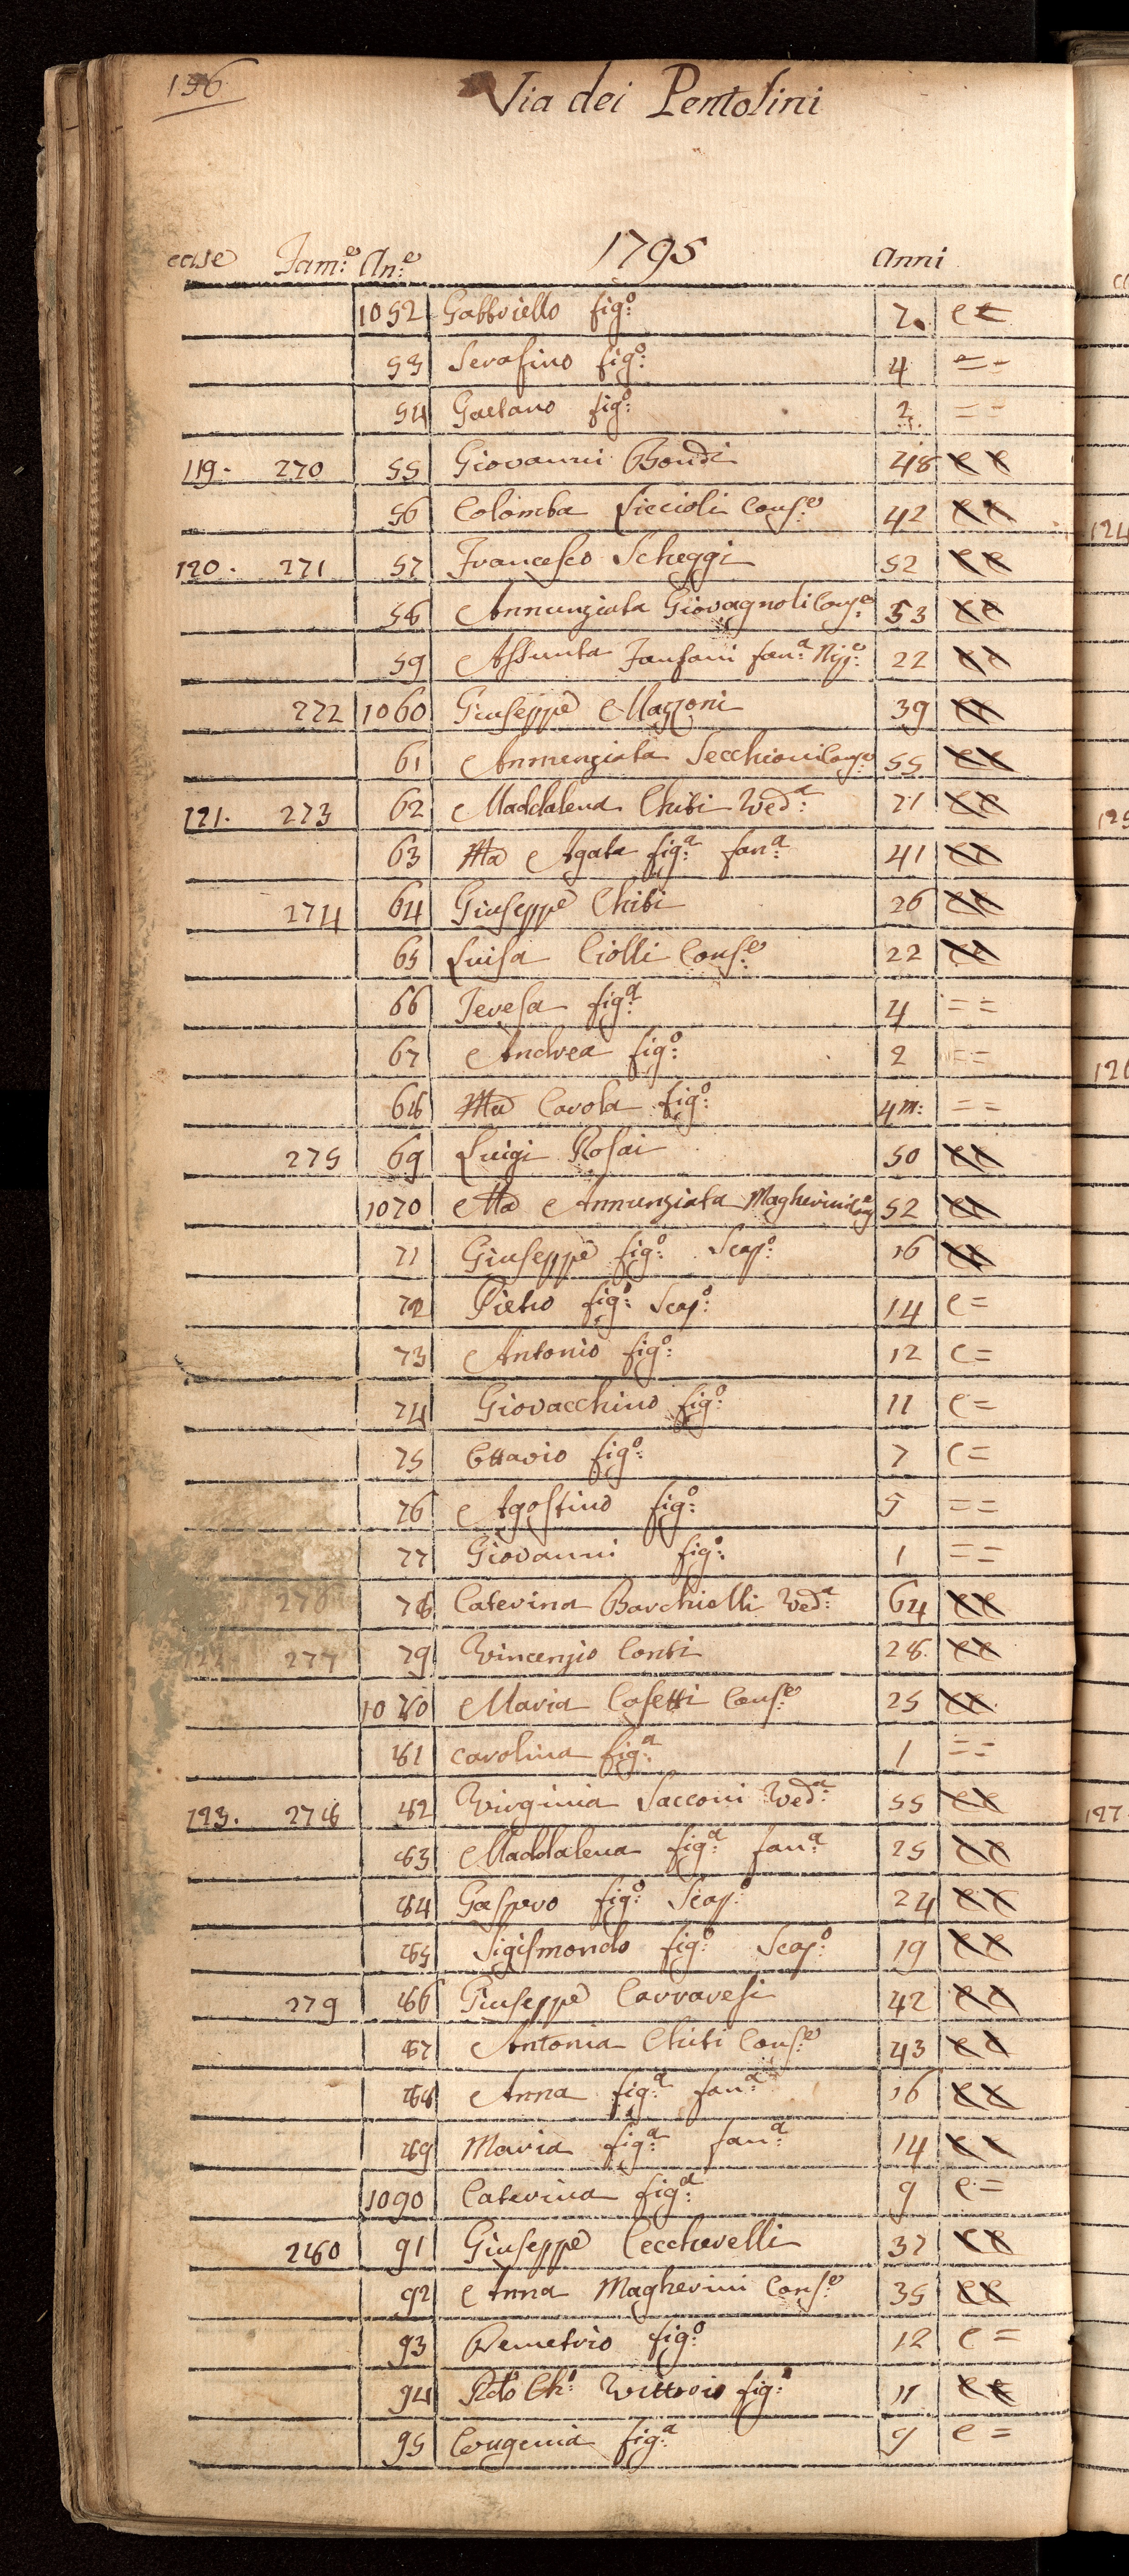 156
Via dei Pentolini
case Fam:e An:e 1795 Anni
1052 Gabbriello fig:o 7. c c
53 Serafino fig:o 4 = =
54 Gaetano fig:o 2 = =
119. 270 55 Giovanni Bondi 48 c c
56 Colomba Liccioli Cons:e 42 c c
120. 271 57 Francesco Scheggi 52 c c
58 Annunziata Giovagnoli Cons:e 53 c c
59 Assunta Fanfani fan:a 22 c c
272 1060 Giuseppe Mazzoni 39 c c
61 Annunziata Secchioni Cons:e 55 c c
121. 273 62 Maddalena Chiti Ved:a 71 c c
63 Ma Agata fig:a fan:a 41 c c
274 64 Giuseppe Chiti 26 c c
65 Luisa Ciolli Cons:e 22 c c
66 Teresa fig:a 4 = =
67 Andrea fig:o 2 = =
68 Ma Carola fig:a 4 m: = =
275 69 Luigi Rosai 50 c c
1070 Ma Annunziata Magherini Cons:e 52 c c
71 Giuseppe fig:o Scap:o 16 c c
72 Pietro fig:o Scap:o 14 c =
73 Antonio fig:o 12 c =
74 Giovacchino fig:o 11 c =
75 Ottavio fig:o 7 c =
76 Agostino fig:o 5 = =
77 Giovanni fig:o 1 = =
276 78 Caterina Barchielli Ved:a 64 c c
122 277 79 Vincenzio Conti 28. c c
1080 Maria Casetti Cons:e 25 c c
81 carolina fig:a 1 = =
123. 278 82 Virginia Sacconi Ved:a 55 c c
83 Maddalena fig:a fan:a 25 c c
84 Gaspero fig:o Scap:o 24 c c
85 Sigismondo fig:o Scap:o 19 c c
279 86 Giuseppe Carraresi 42 c c
87 Antonia Chiti Cons:e 43 c c
88 Anna fig:a fan:a 16 c c
89 Maria fig:a fan:a 14 c c
1090 Caterina fig:a 9 c =
280 91 Giuseppe Ceccherelli 37 c c
92 Anna Magherini Cons:e 35 c c
93 Demetrio fig:o 12 c =
94 Ch:o Vittorio fig:o 11 c c
95 Eugenia fig:a 9 c =